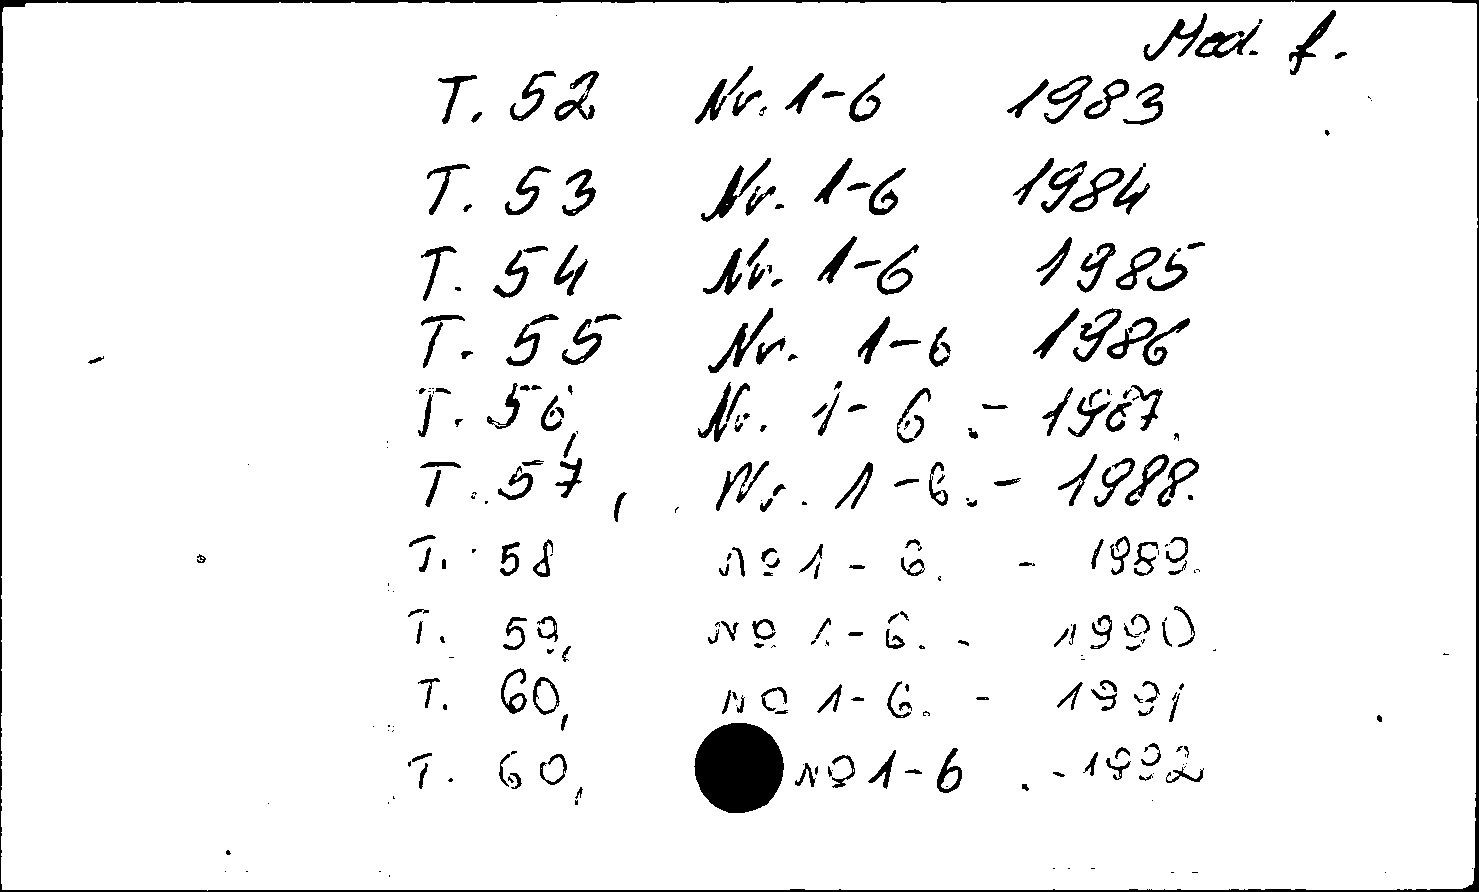 Med. f.
T. 52 Nr. 1-6 1983
T. 53 Nr. 1-6 1984
T. 54 Nr. 1-6 1985
T. 55 Nr. 1-6 1986
T. 56, Nr. 1-6.- 1987.
T. 57, Nr. 1-6.- 1988.
T. 58 № 1-6. - 1989.
T. 59, № 1-6. - 1990.
T. 60, № 1-6. - 1991
T. 60, № 1-6. - 1992